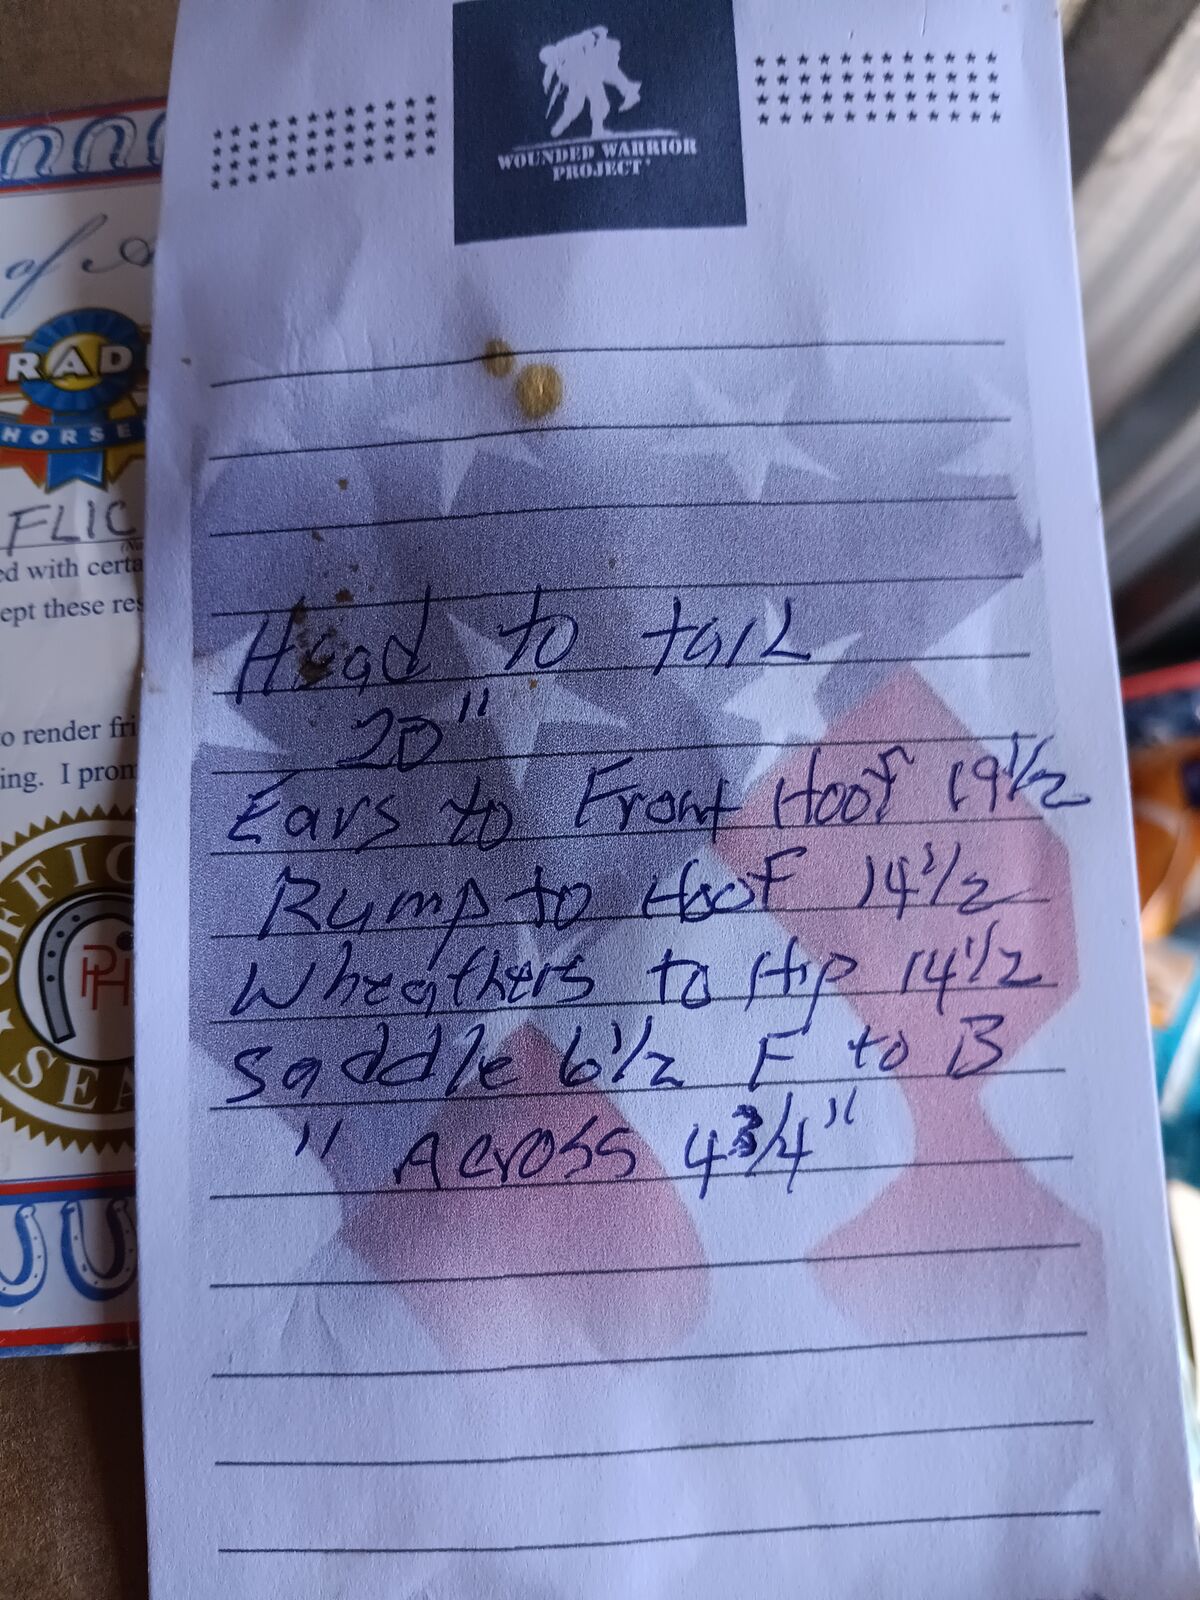 WOUNDED WARRIOR
PROJECT
Head to tail
20"
Ears to Front Hoof 19 1/2
Rump to Hoof 14 1/2
Wheathers to Hip 14 1/2
Saddle 6 1/2 F to B
" Across 4 3/4"
of
RAD
HORSE
FLIC
ed with certa
ept these res
to render fri
ing. I prom
OFFIC
SEA